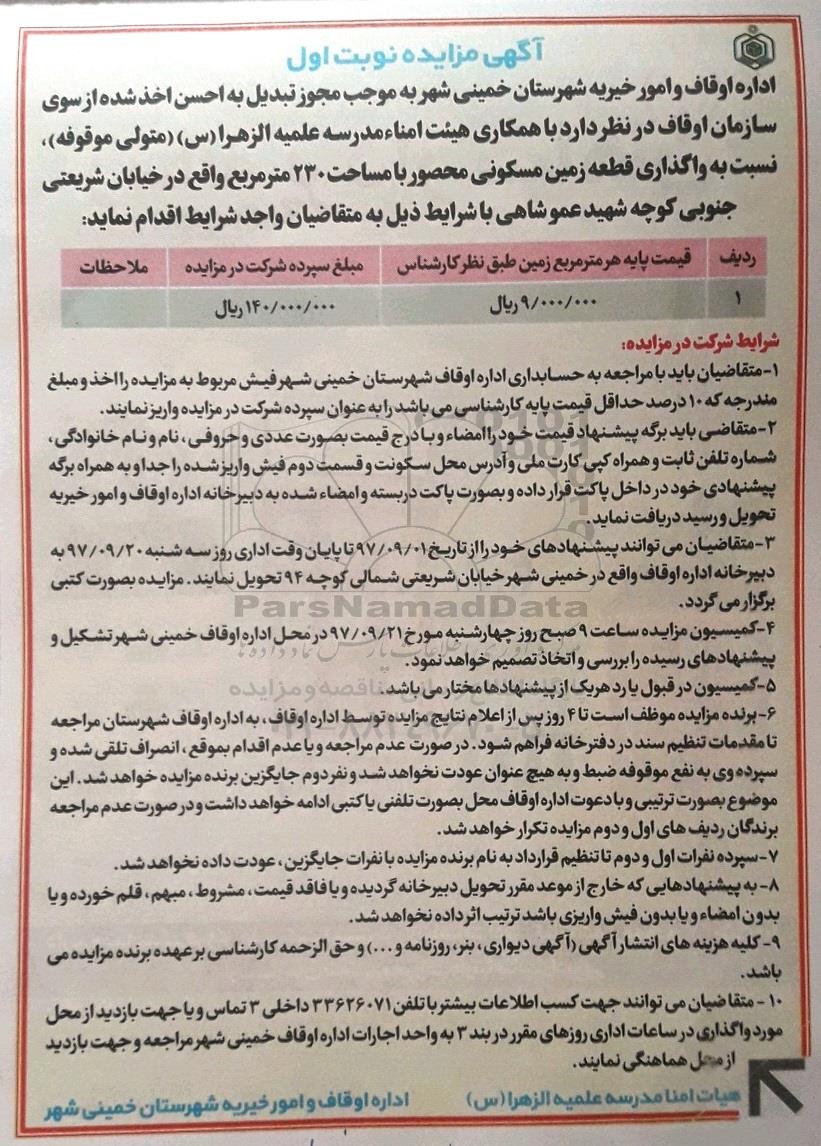 آگهی مزایده نوبت اول
اداره اوقاف و امور خیریه شهرستان خمینی شهر به موجب مجوز تبدیل به احسن اخذ شده از سوی
سازمان اوقاف در نظر دارد با همکاری هیئت امناء مدرسه علمیه الزهرا (س) (متولی موقوفه)،
نسبت به واگذاری قطعه زمین مسکونی محصور با مساحت ۲۳۰ مترمربع واقع در خیابان شریعتی
جنوبی کوچه شهید عموشاهی با شرایط ذیل به متقاضیان واجد شرایط اقدام نماید:
ردیف قیمت پایه هر مترمربع زمین طبق نظر کارشناس مبلغ سپرده شرکت در مزایده ملاحظات
۱ ۹/۰۰۰/۰۰۰ ریال ۱۴۰/۰۰۰/۰۰۰ ریال
شرایط شرکت در مزایده:
۱-متقاضیان باید با مراجعه به حسابداری اداره اوقاف شهرستان خمینی شهر فیش مربوط به مزایده را اخذ و مبلغ
مندرجه که ۱۰ درصد حداقل قیمت پایه کارشناسی می باشد را به عنوان سپرده شرکت در مزایده واریز نمایند.
۲-متقاضی باید برگه پیشنهاد قیمت خود را امضاء و با درج قیمت بصورت عددی و حروفی، نام و نام خانوادگی،
شماره تلفن ثابت و همراه کپی کارت ملی و آدرس محل سکونت و قسمت دوم فیش واریز شده را جدا و به همراه برگه
پیشنهادی خود در داخل پاکت قرار داده و بصورت پاکت دربسته و امضاء شده به دبیرخانه اداره اوقاف و امور خیریه
تحویل و رسید دریافت نماید.
۳-متقاضیان می توانند پیشنهادهای خود را از تاریخ ۹۷/۰۹/۰۱ تا پایان وقت اداری روز سه شنبه ۹۷/۰۹/۲۰ به
دبیرخانه اداره اوقاف واقع در خمینی شهر خیابان شریعتی شمالی کوچه ۹۴ تحویل نمایند. مزایده بصورت کتبی
برگزار می گردد.
ParsNamadData
۴-کمیسیون مزایده ساعت ۹ صبح روز چهارشنبه مورخ ۹۷/۰۹/۲۱ در محل اداره اوقاف خمینی شهر تشکیل و
پیشنهادهای رسیده را بررسی و اتخاذ تصمیم خواهد نمود.
۵-کمیسیون در قبول یا رد هریک از پیشنهادها مختار می باشد.
۶-برنده مزایده موظف است تا ۴ روز پس از اعلام نتایج مزایده توسط اداره اوقاف، به اداره اوقاف شهرستان مراجعه
تا مقدمات تنظیم سند در دفترخانه فراهم شود. در صورت عدم مراجعه و یا عدم اقدام بموقع، انصراف تلقی شده و
سپرده وی به نفع موقوفه ضبط و به هیچ عنوان عودت نخواهد شد و نفر دوم جایگزین برنده مزایده خواهد شد. این
موضوع بصورت ترتیبی و با دعوت اداره اوقاف محل بصورت تلفنی یا کتبی ادامه خواهد داشت و در صورت عدم مراجعه
برندگان ردیف های اول و دوم مزایده تکرار خواهد شد.
۷-سپرده نفرات اول و دوم تا تنظیم قرارداد به نام برنده مزایده با نفرات جایگزین، عودت داده نخواهد شد.
۸-به پیشنهادهایی که خارج از موعد مقرر تحویل دبیرخانه گردیده و یا فاقد قیمت، مشروط، مبهم، قلم خورده و یا
بدون امضاء و یا بدون فیش واریزی باشد ترتیب اثر داده نخواهد شد.
۹-کلیه هزینه های انتشار آگهی (آگهی دیواری، بنر، روزنامه و ...) و حق الزحمه کارشناسی بر عهده برنده مزایده می
باشد.
۱۰- متقاضیان می توانند جهت کسب اطلاعات بیشتر با تلفن ۳۳۶۲۶۰۷۱ داخلی ۳ تماس و یا جهت بازدید از محل
مورد واگذاری در ساعات اداری روزهای مقرر در بند ۳ به واحد اجارات اداره اوقاف خمینی شهر مراجعه و جهت بازدید
از محل هماهنگی نمایند.
هیات امنا مدرسه علمیه الزهرا (س) اداره اوقاف و امور خیریه شهرستان خمینی شهر